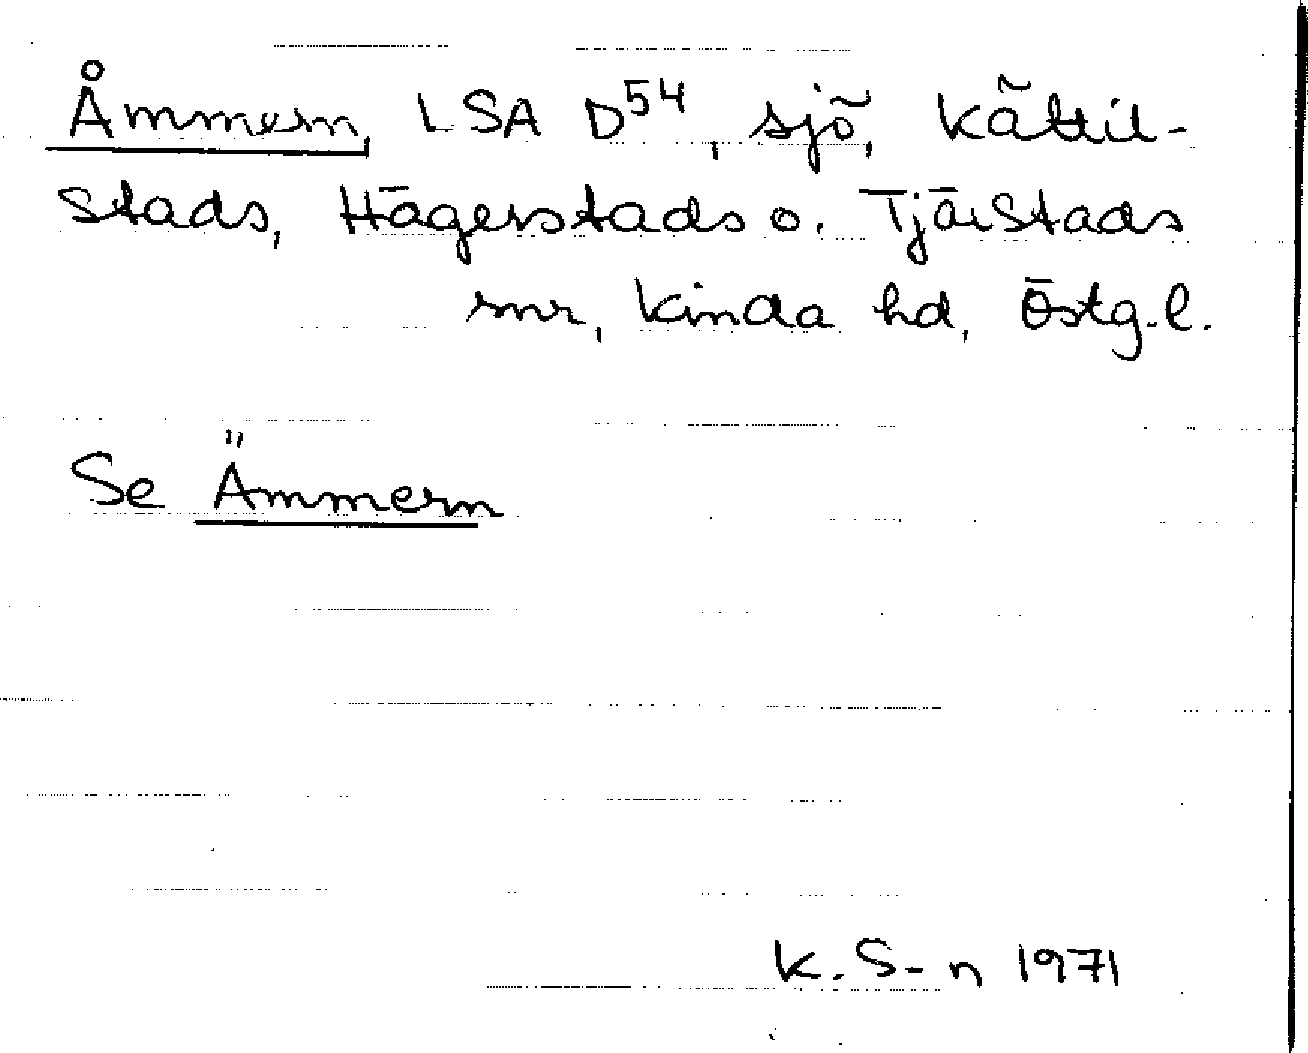 Åmmern, LSA D54, sjö, Kättil-
stads, Hägerstads o. Tjärstads
snr, Kinda hd, Östg.l.
Se Ämmern
K. S-n 1971